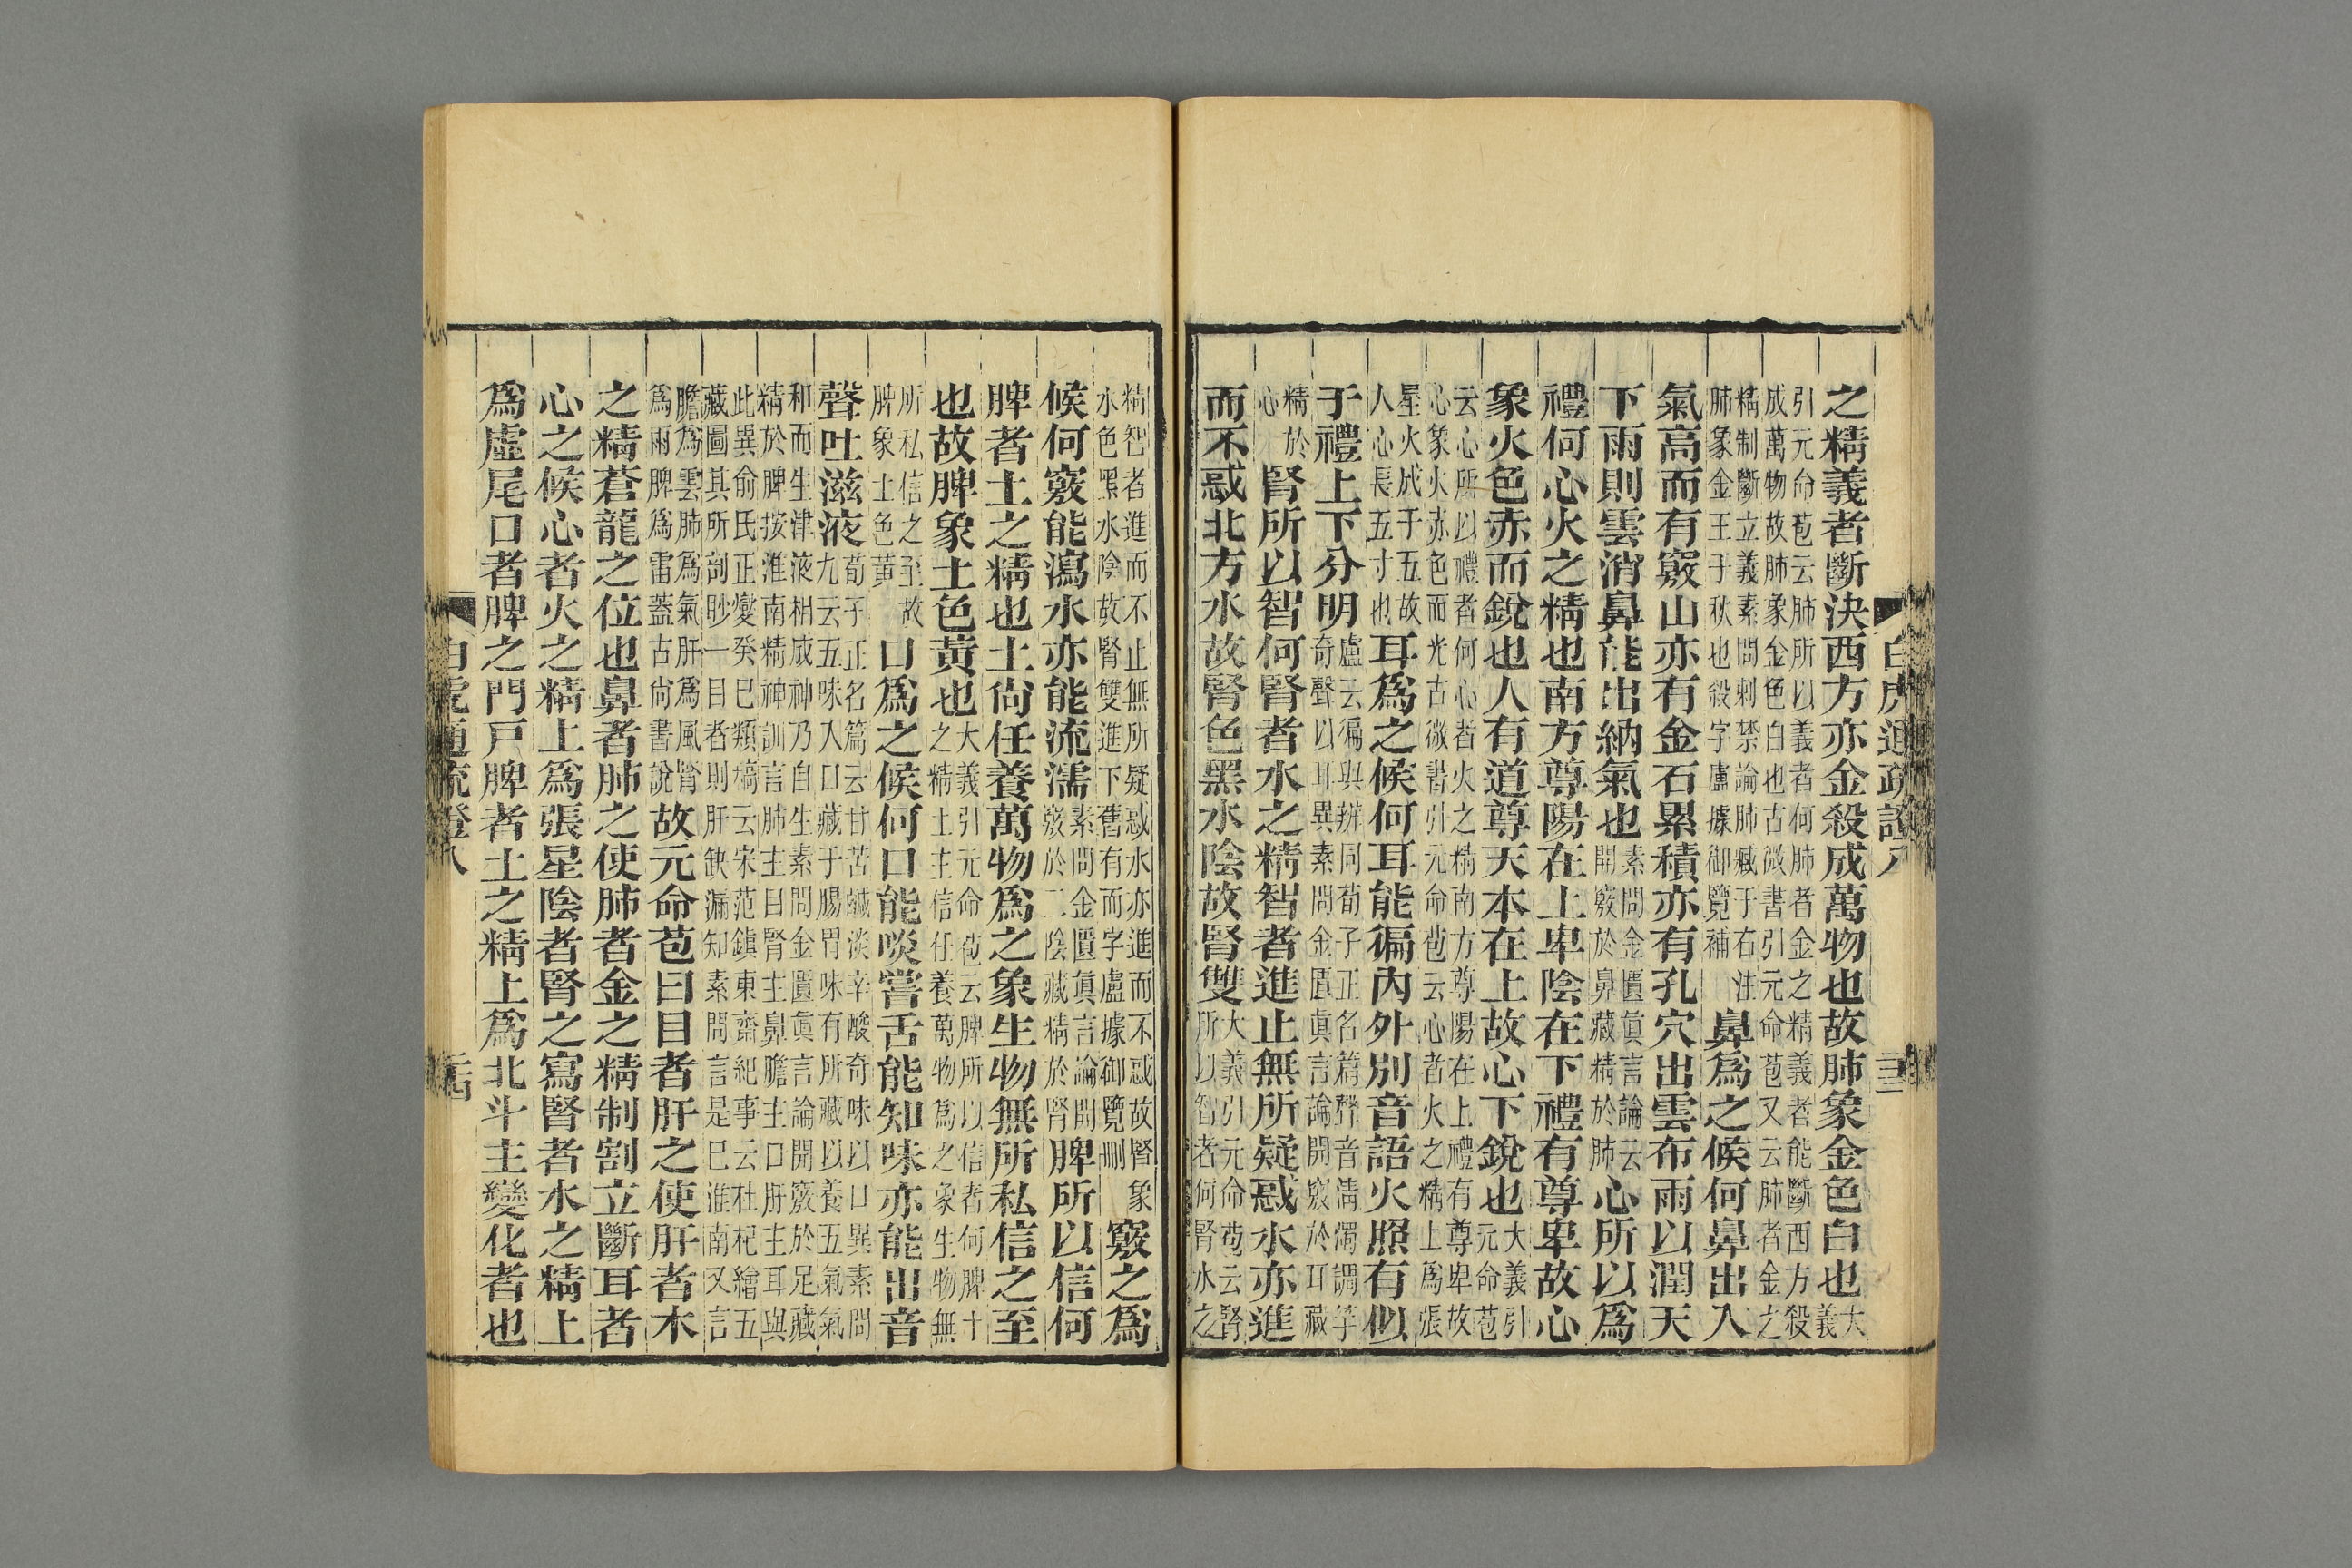 白虎通疏證八
之精義者斷決西方亦金殺成萬物也故肺象金色白也大義
引元命苞云肺所以義者何肺者金之精義者能斷西方殺
成萬物故肺象金色白也古微書引元命苞又云肺者金之
精制斷立義素問刺禁論肺臧于右注
肺象金王于秋也殺字盧據御覽補
鼻爲之候何鼻出入
氣高而有竅山亦有金石累積亦有孔穴出雲布雨以潤天
下雨則雲消鼻能出納氣也
素問金匱眞言論云
開竅於鼻藏精於肺
心所以爲
禮何心火之精也南方尊陽在上卑陰在下禮有尊卑故心
象火色赤而銳也人有道尊天本在上故心下銳也
大義引
元命苞
云心所以禮者何心者火之精南方尊陽在上禮有尊卑故
心象火赤色而光古微書引元命苞云心者火之精上爲張
星火成于五故
人心長五寸也
耳爲之候何耳能徧內外別音語火照有似
于禮上下分明
盧云徧與辨同荀子正名篇聲音淸濁調竽
奇聲以耳異素問金匱眞言論開竅於耳藏
精於
心
腎所以智何腎者水之精智者進止無所疑惑水亦進
而不惑北方水故腎色黑水陰故腎雙
大義引元命苞云腎
所以智者何腎水之
精智者進而不止無所疑惑水亦進而不惑故腎象
水色黑水陰故腎雙進下舊有而字盧據御覽刪
竅之爲
候何竅能瀉水亦能流濡
素問金匱眞言論開
竅於二陰藏精於腎
脾所以信何
脾者土之精也土尙任養萬物爲之象生物無所私信之至
也故脾象土色黃也
大義引元命苞云脾所以信者何脾十
之精土主信任養萬物爲之象生物無
所私信之至故
脾象土色黃
口爲之候何口能啖嘗舌能知味亦能出音
聲吐滋液
荀子正名篇云甘苦鹹淡辛酸奇味以口異素問
九云五味入口藏于腸胃味有所藏以養五氣氣
和而生津液相成神乃自生素問金匱眞言論開竅於足藏
精於脾按淮南精神訓言肺主目腎主鼻膽主口肝主耳與
此異俞氏正燮癸巳類槁云宋范鎭東齋紀事云杜杞繪五
藏圖其所剖眇一目者則肝缺漏知素問言是巳淮南又言
膽爲雲肺爲氣肝爲風腎
爲雨脾爲雷蓋古尙書說
故元命苞曰目者肝之使肝者木
之精蒼龍之位也鼻者肺之使肺者金之精制割立斷耳者
心之候心者火之精上爲張星陰者腎之寫腎者水之精上
爲虛尾口者脾之門戸脾者土之精上爲北斗主變化者也
白虎通疏證八